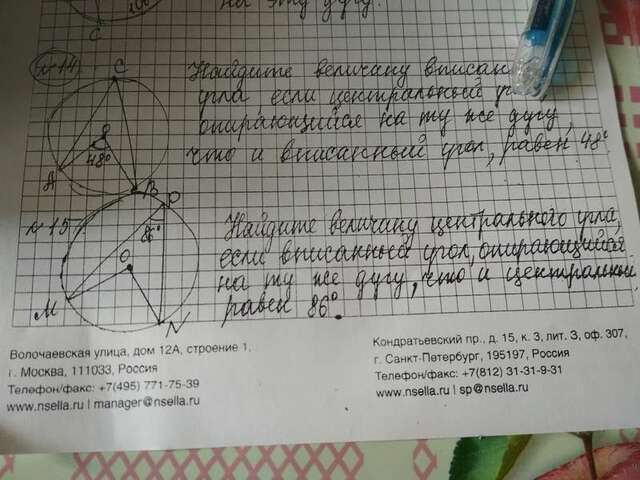 на эту дугу.
C
№14
C
48°
A
B
Найдите величану вписан
угла если центральный уг
опирающийся на ту же дугу,
что и вписанный угол, равен 48°
№15
P
86°
O
M
N
Найдите величану центрального угла,
если вписанный угол, опирающийся
на ту же дугу, что и центральный
равен 86°.
Волочаевская улица, дом 12А, строение 1,
г. Москва, 111033, Россия
Телефон/факс: +7(495) 771-75-39
www.nsella.ru | manager@nsella.ru
Кондратьевский пр., д. 15, к. 3, лит. З, оф. 307,
г. Санкт-Петербург, 195197, Россия
Телефон/факс: +7(812) 31-31-9-31
www.nsella.ru | sp@nsella.ru